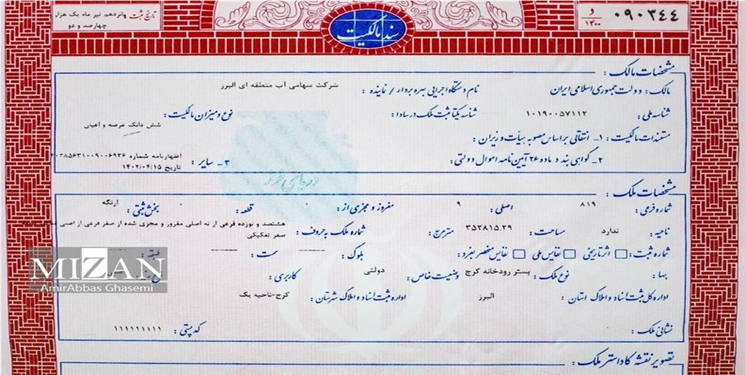 ۰۹۰۳۴۴
و
۱۳۰۰
سند مالکیت
تاریخ ثبت پانزدهم تیر ماه یک هزار
چهارصد و دو
مشخصات مالک :
مالک : دولت جمهوری اسلامی ایران نام دستگاه اجرایی بهره بردار / نماینده : شرکت سهامی آب منطقه ای البرز
شناسه ملی : ۱۰۱۹۰۰۵۷۱۱۲ شناسه یکتا ثبت ملک در سادا : نوع و میزان مالکیت : شش دانگ عرصه و اعیان
مستندات مالکیت : ۱- انتقالی بر اساس مصوبه هیأت وزیران :
۲- گواهی بند د ماده ۲۶ آیین نامه اموال دولتی : ۳- سایر : اظهارنامه شماره
تاریخ ۱۴۰۲/۰۴/۱۵
مشخصات ملک :
شماره فرعی : ۸۱۹ اصلی : ۹ مفروز و مجزی از : قطعه : بخش ثبتی : ارنگه
ناحیه : ندارد مساحت : ۳۵۲۸۱۵.۲۹ مترمربع شماره ملک معروف : هشتصد و نوزده فرعی از نه اصلی مفروز و مجزی شده از صفر فرعی از اصلی
صفر تفکیکی
شماره ثبت : اثر تاریخی نفایس ملی نفایس منحصر بفرد بلوک : سمت :
بها : نوع ملک : بستر رودخانه کرج وضعیت خاص : دولتی کاربری :
اداره کل ثبت اسناد و املاک استان : البرز اداره ثبت اسناد و املاک شهرستان : کرج-ناحیه یک
نشانی ملک : کد پستی : ۱۱۱۱۱۱۱۱۱
تصویر نقشه کاداستر ملک :
MIZAN
AmirAbbas Ghasemi